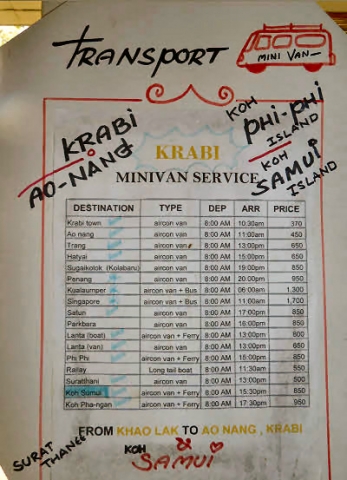 TRANSPORT
MINI VAN
KRABI
AO-NANG
KOH
PHI-PHI
ISLAND
KOH
SAMUI
ISLAND
KRABI
MINIVAN SERVICE
DESTINATION TYPE DEP ARR PRICE
Krabi town aircon van 8:00 AM 10:30am 370
Ao nang aircon van 8:00 AM 11:00am 450
Trang aircon van 8:00 AM 13:00pm 650
Hatyai aircon van 8:00 AM 15:00pm 650
Sugaikolok (Kolabaru) aircon van 8:00 AM 19:00pm 850
Penang aircon van 8:00 AM 20:00pm 950
Kualaumper aircon van + Bus 8:00 AM 06:00am 1,300
Singapore aircon van + Bus 8:00 AM 11:00am 1,700
Satun aircon van 8:00 AM 17:00pm 850
Pakbara aircon van 8:00 AM 16:00pm 850
Lanta (boat) aircon van + Ferry 8:00 AM 13:00pm
Lanta (van) aircon van 8:00 AM 13:00pm
Phi Phi aircon van + Ferry 8:00 AM 850
Railay Long tail boat 8:00 AM 11:30am 550
Suratthani aircon van 8:00 AM 13:00pm 500
Koh Samui aircon van + Ferry 8:00 AM 15:30pm 850
Koh Pha-ngan aircon van + Ferry 8:00 AM 17:30pm 950
FROM KHAO LAK TO AO NANG , KRABI
&
SURAT
THANEE
KOH
SAMUI